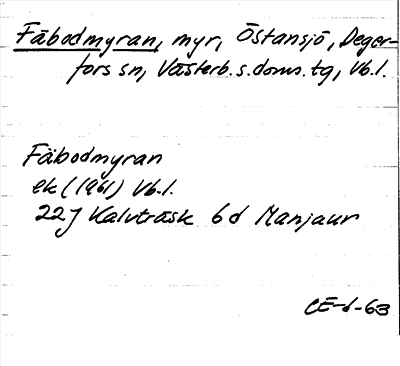 Fäbodmyran, myr, Östansjö, Deger-
fors sn, Västerb. s. doms. tg, Vb.l.
Fäbodmyran
ek (1961) Vb.l.
22J Kalvträsk 6d Manjaur
CE-d-63